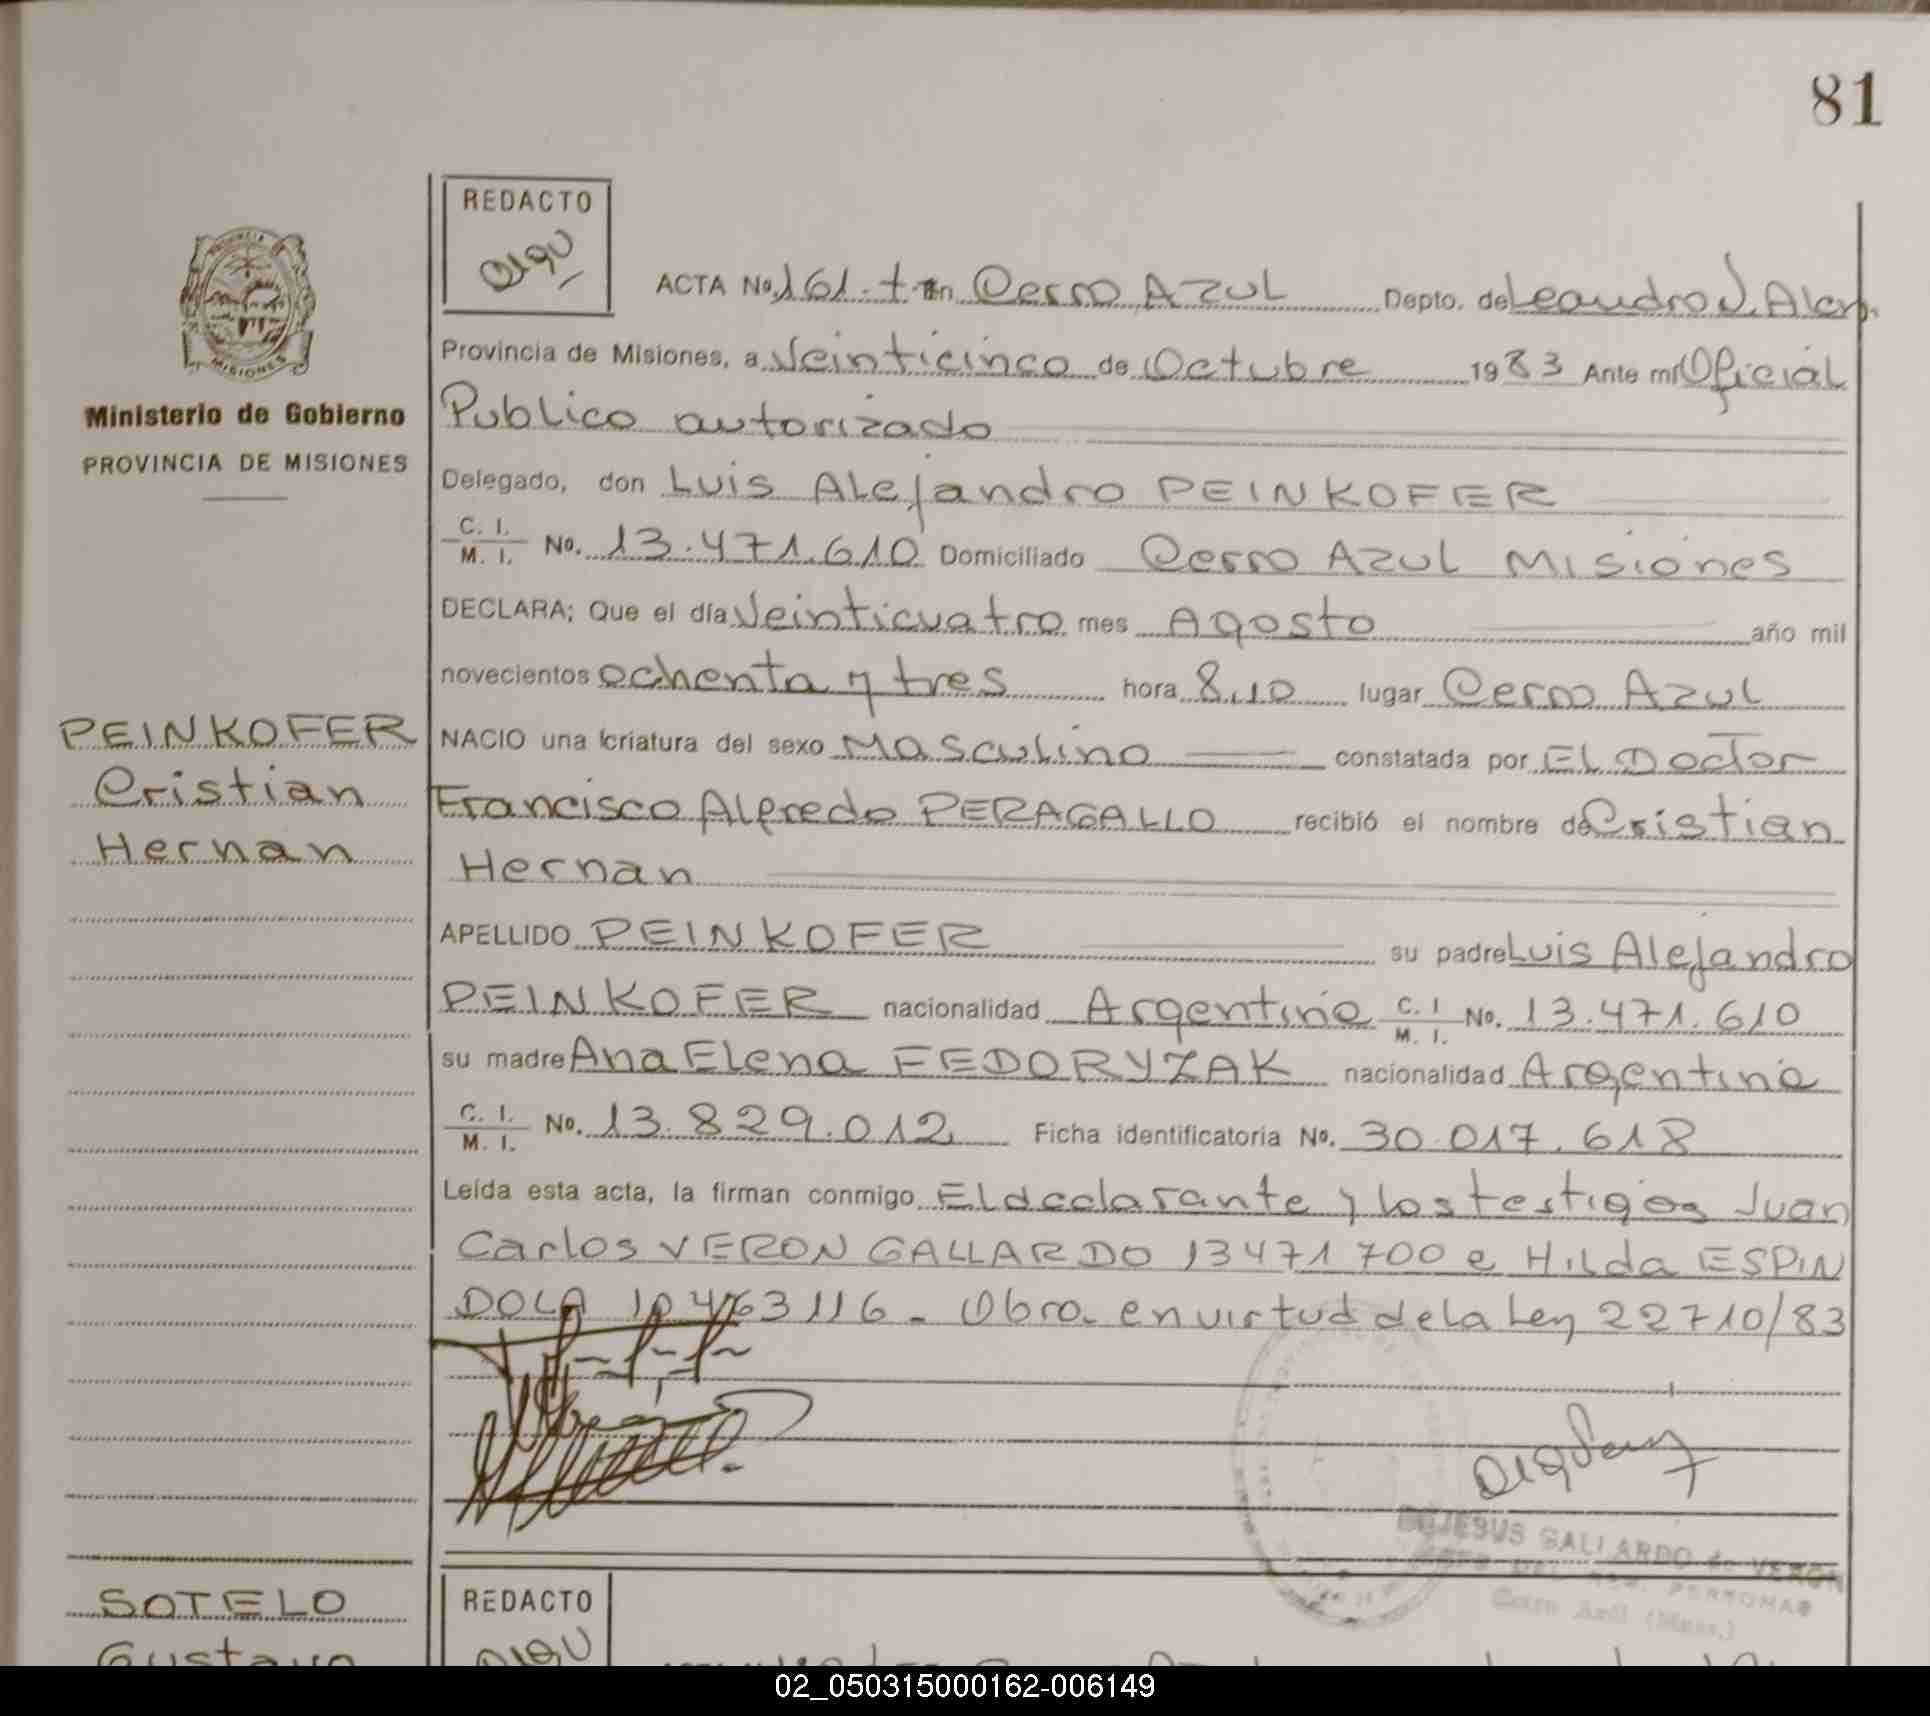 81
REDACTO
PROVINCIA
MISIONES
Ministerio de Gobierno
PROVINCIA DE MISIONES
ACTA No. 161.t En Cerro AZUL Depto. de Leandro N. Alem.
Provincia de Misiones, a Veinticinco de Octubre 1983 Ante mi Oficial
Publico autorizado
Delegado, don Luis Alejandro PEINKOFER
C. I. / M. I. No. 13.471.610 Domiciliado Cerro AZUL Misiones
DECLARA; Que el día Veinticuatro mes Agosto año mil
novecientos ochenta y tres hora 8,10 lugar Cerro AZUL
PEINKOFER
Cristian
Hernan
NACIO una criatura del sexo Masculino constatada por El Doctor
Francisco Alfredo PERAGALLO recibió el nombre de Cristian
Hernan
APELLIDO PEINKOFER su padre Luis Alejandro
PEINKOFER nacionalidad Argentina C. I / M. I. No. 13.471.610
su madre Ana Elena FEDORYZAK nacionalidad Argentina
C. I. / M. I. No. 13.829.012 Ficha identificatoria No. 30.017.618
Leída esta acta, la firman conmigo El declarante y los testigos Juan
Carlos VERON GALLARDO 13471700 e Hilda ESPIN
DOLA 10463116 - Obro. en virtud de la Ley 22710/83
JESUS GALLARDO de VERON
PERSONAS
Cerro Azul (Mnes.)
SOTELO
Gustavo
REDACTO
02_050315000162-006149